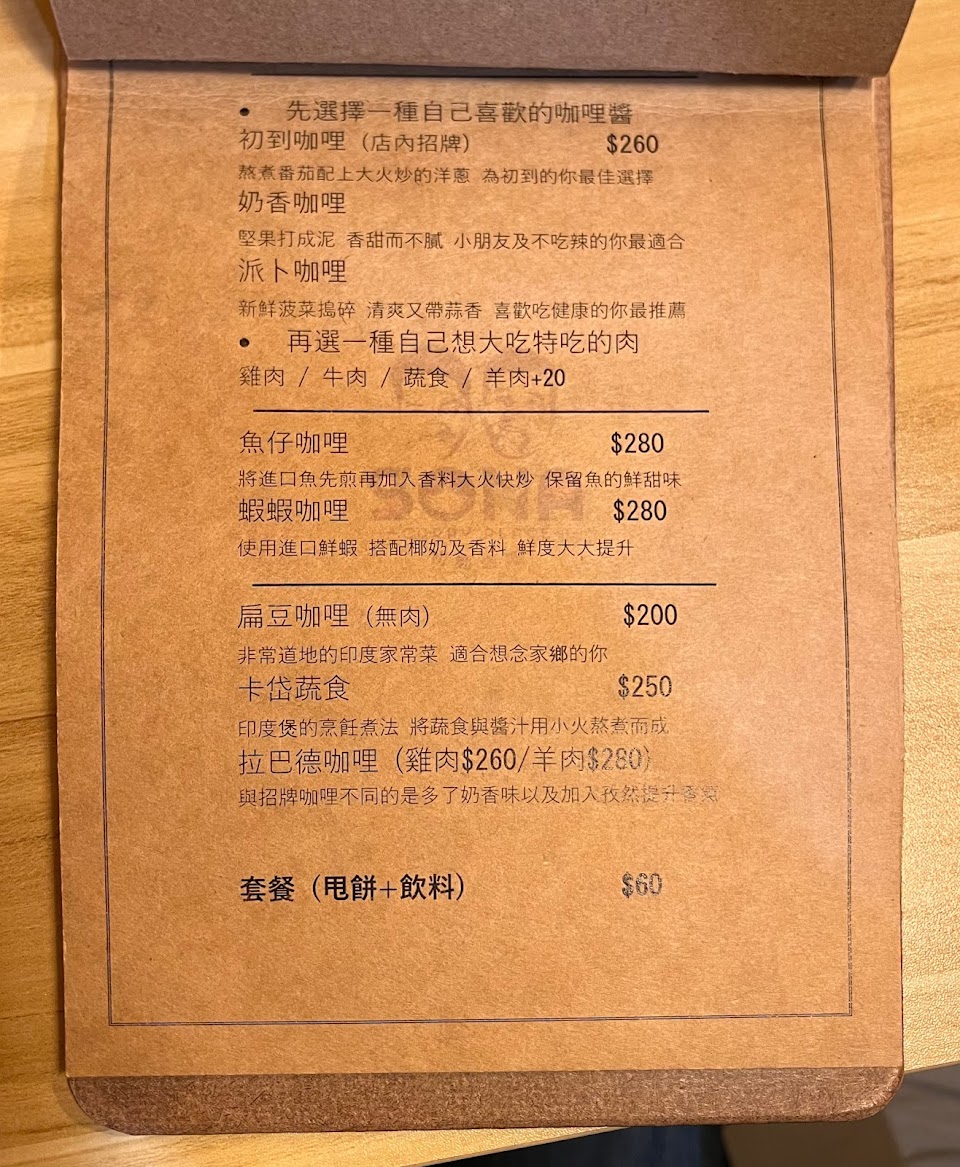 • 先選擇一種自己喜歡的咖哩醬
初到咖哩（店內招牌） $260
熬煮番茄配上大火炒的洋蔥 為初到的你最佳選擇
奶香咖哩
堅果打成泥 香甜而不膩 小朋友及不吃辣的你最適合
派卜咖哩
新鮮菠菜搗碎 清爽又帶蒜香 喜歡吃健康的你最推薦
• 再選一種自己想大吃特吃的肉
雞肉 / 牛肉 / 蔬食 / 羊肉+20
魚仔咖哩 $280
將進口魚先煎再加入香料大火快炒 保留魚的鮮甜味
蝦蝦咖哩 $280
使用進口鮮蝦 搭配椰奶及香料 鮮度大大提升
扁豆咖哩（無肉） $200
非常道地的印度家常菜 適合想念家鄉的你
卡岱蔬食 $250
印度煲的烹飪煮法 將蔬食與醬汁用小火熬煮而成
拉巴德咖哩（雞肉$260/羊肉$280）
與招牌咖哩不同的是多了奶香味以及加入孜然提升香氣
套餐（甩餅+飲料） $60